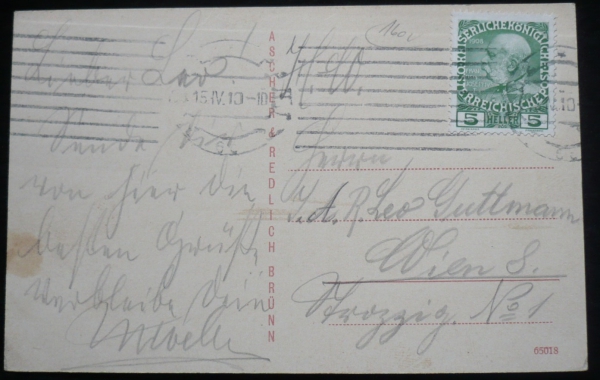 Lieber Leo!
Sende Dir
von hier die
besten Grüße,
verbleibe Dein
ASCHNER & REDLICH BRÜNN
15.IV.10
KAISERLICHE KÖNIGLICHE ÖSTERREICHISCHE
1908
5 HELLER 5
Herrn
Leo Guttmann
Wien 8.
Strozzig. No 1
65018